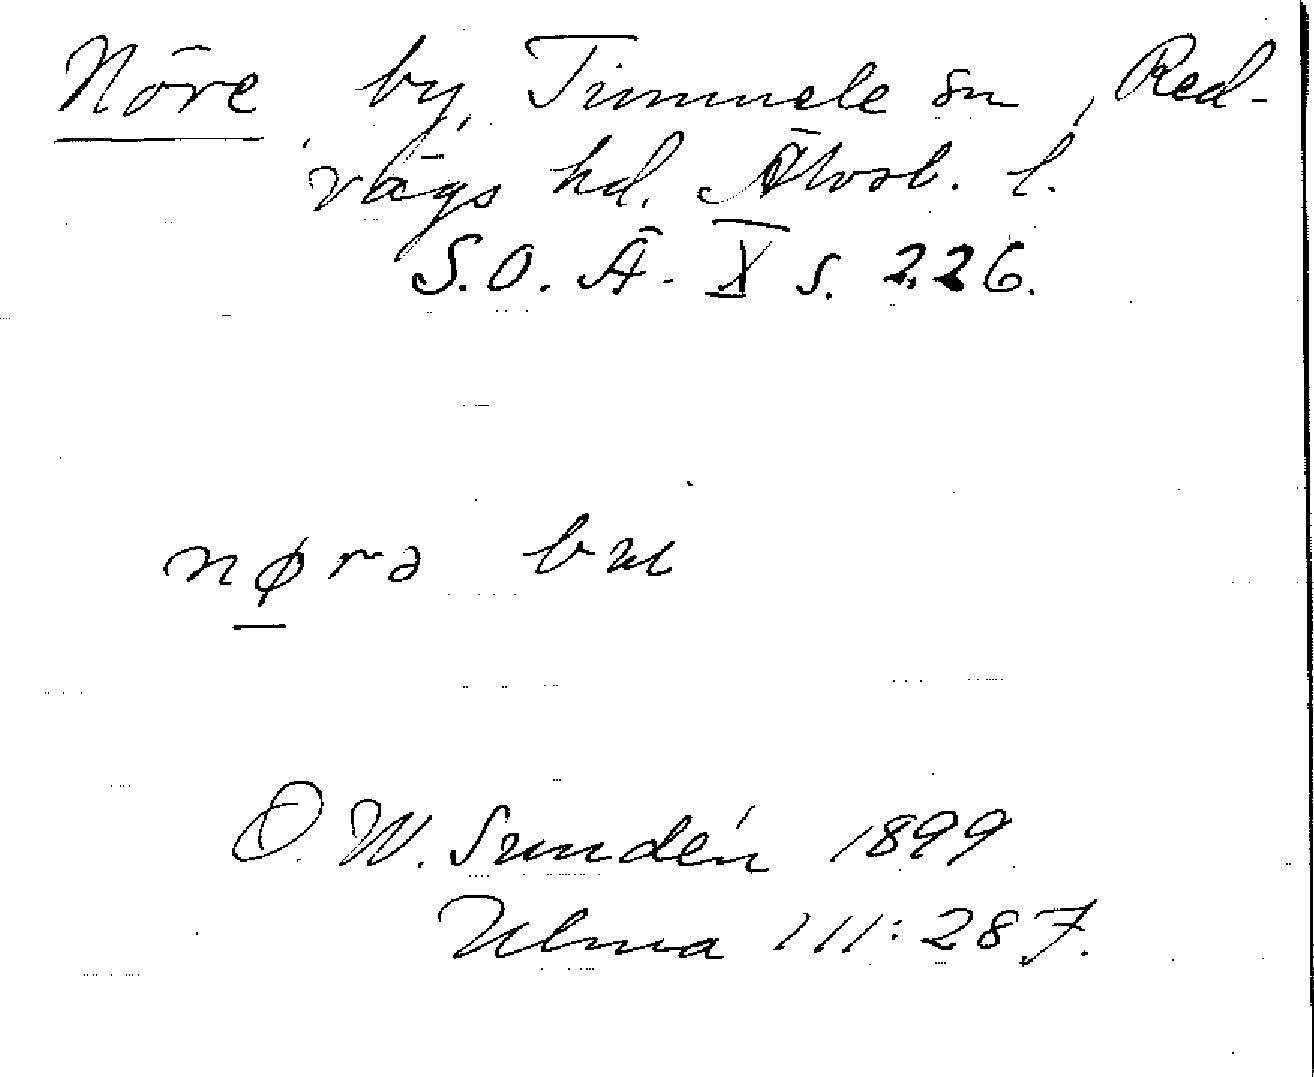 Nöre by, Timmele sn, Red-
vägs hd. Älvsb. l.
S.O. Ä. X s. 226.
nørə
D. W. Sundén 1899
Ulma 111:287.